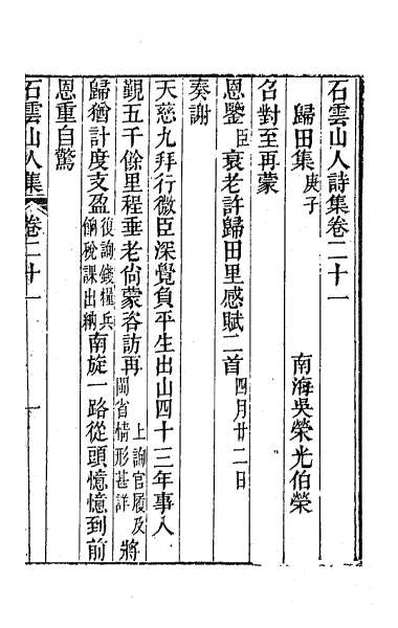 石雲山人詩集卷二十一
歸田集庚子　南海吳榮光伯榮
召對至再蒙
恩鑒臣衰老許歸田里感賦二首四月廿二日
奏謝
天慈九拜行微臣深覺負平生出山四十三年事入
覲五千餘里程垂老尙蒙咨訪再上詢官履及閩省情形甚詳將
歸猶計度支盈復詢錢糧兵餉稅課出納南旋一路從頭憶憶到前
恩重自驚
石雲山人集　卷二十一　一